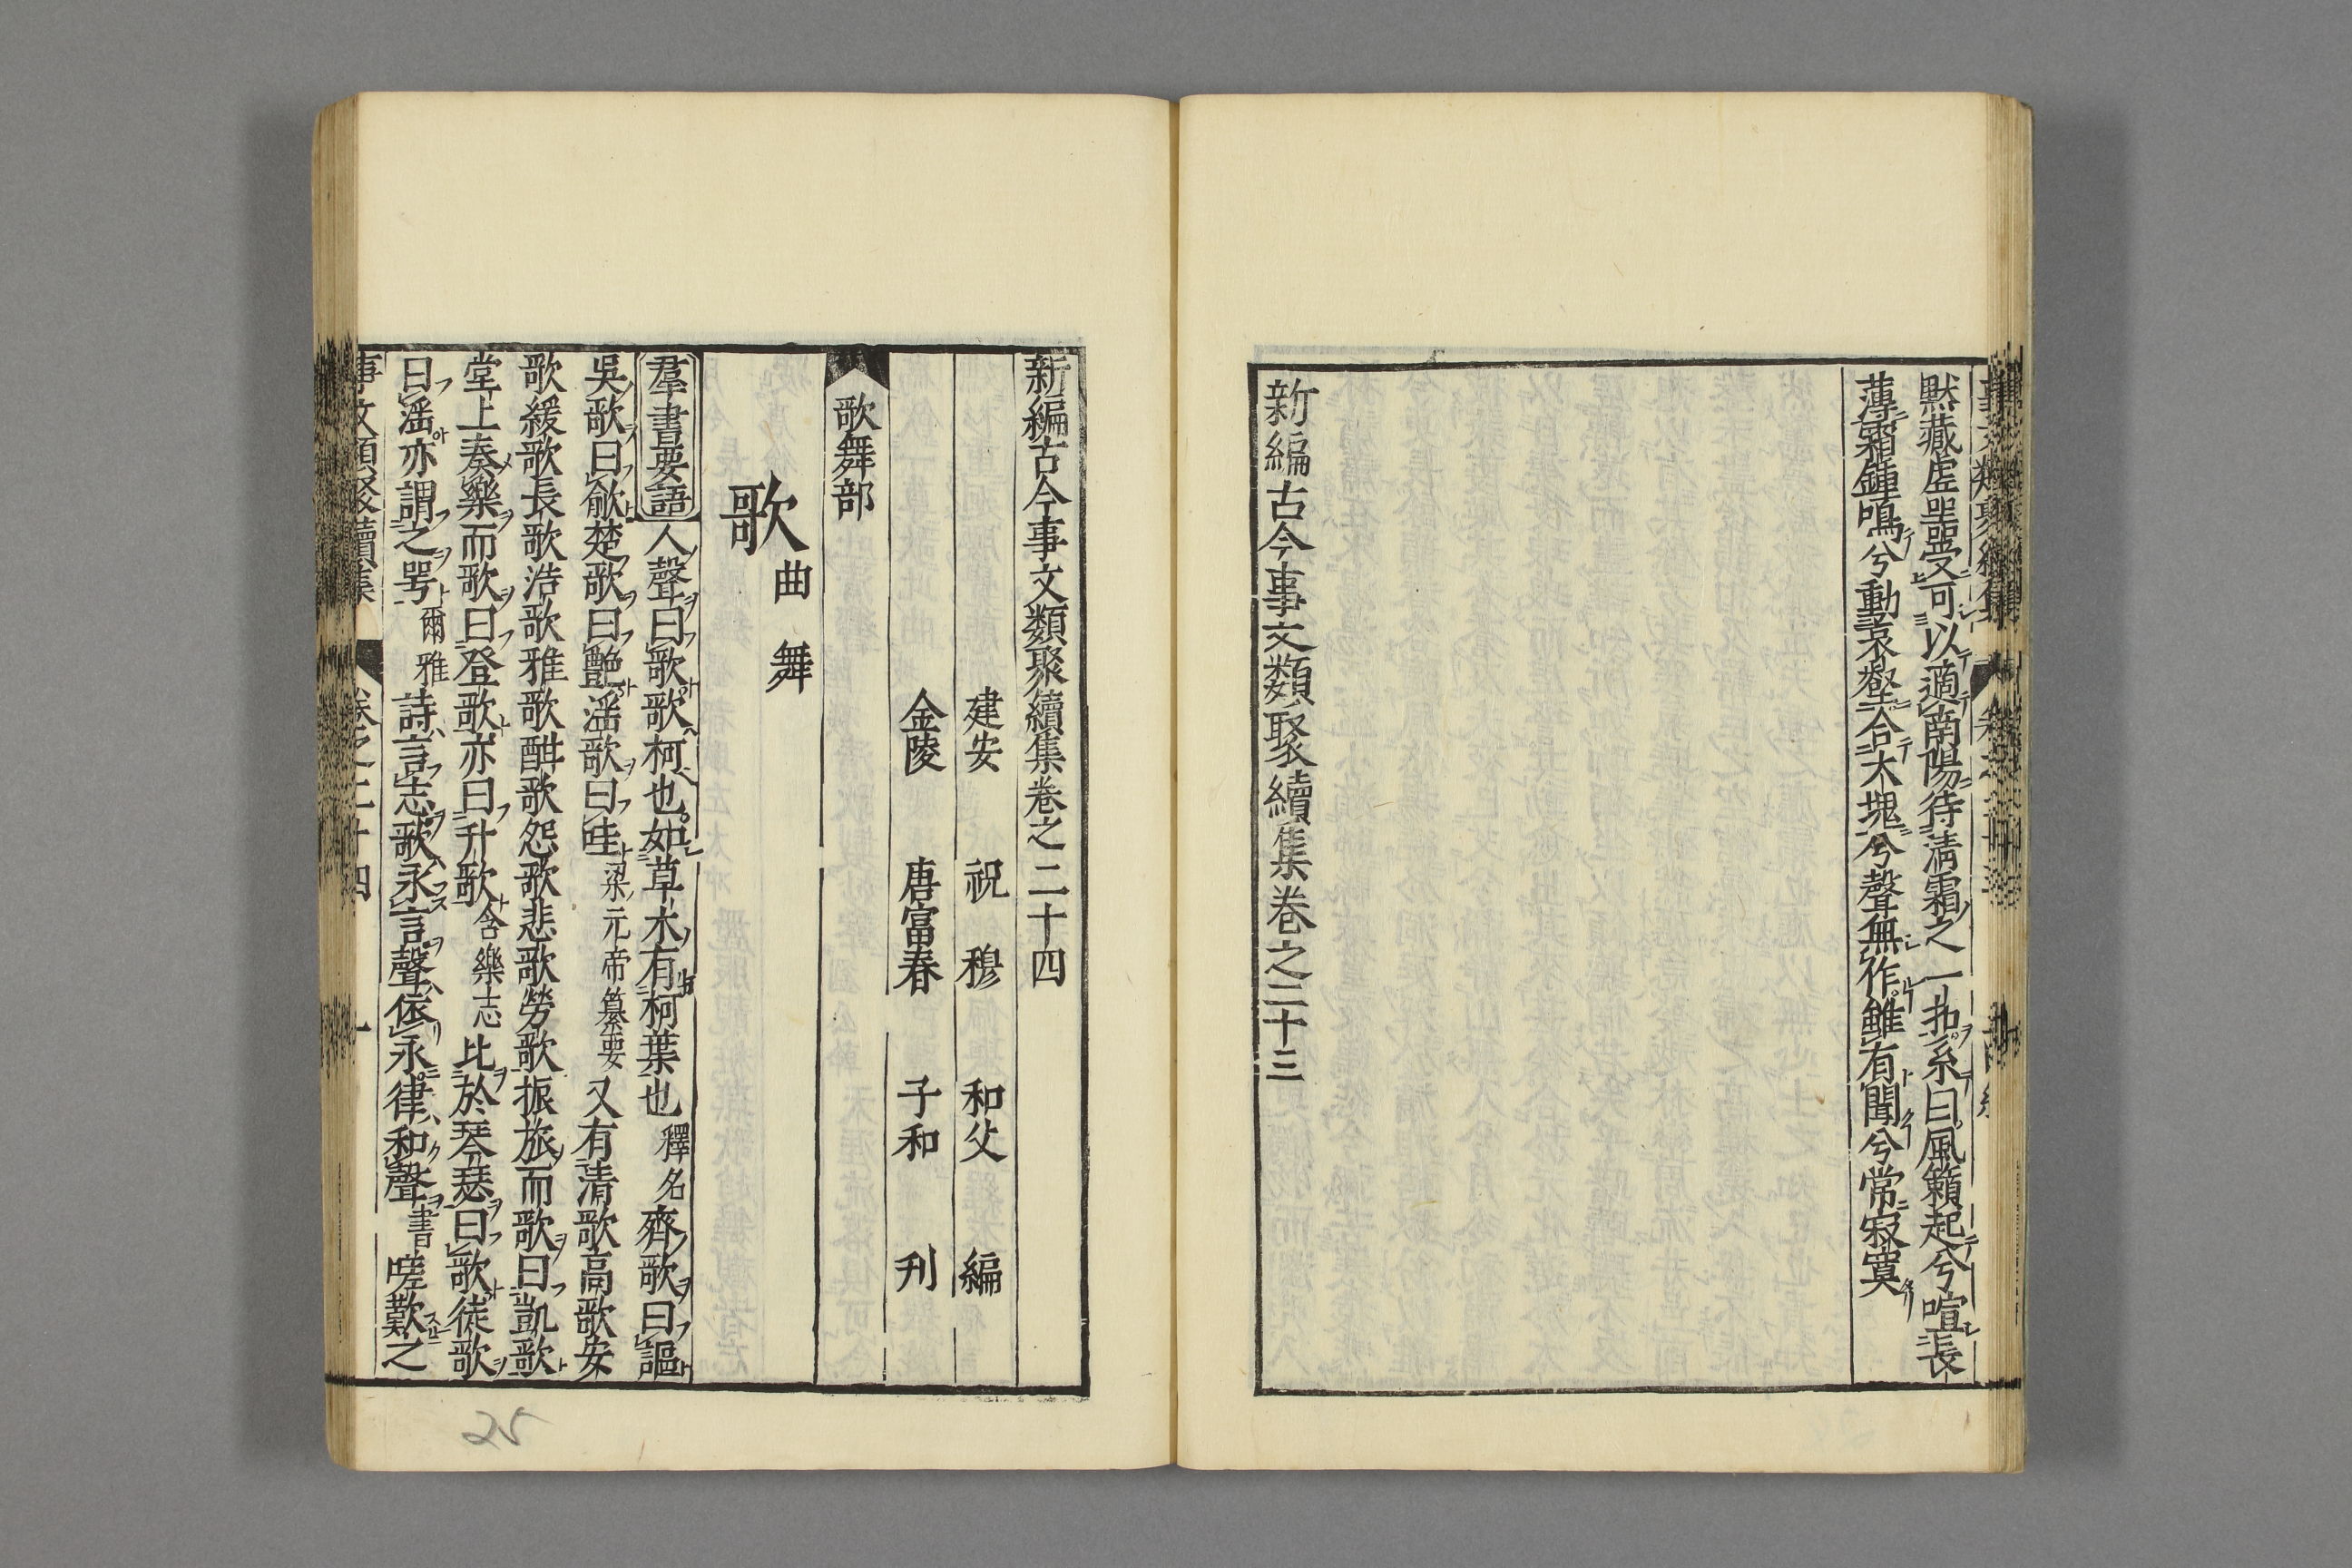 黙藏虚噐受可以適南陽待清霜之一扣系曰風籟起兮喧長
薄霜鍾鳴兮動哀壑合大塊兮聲無作雖有聞兮常寂寞
新編古今事文類聚續集卷之二十三
新編古今事文類聚續集卷之二十四
建安 祝 穆 和父 編
金陵 唐富春 子和 刋
歌舞部
歌 曲 舞
羣書要語 人聲曰歌歌柯也如草木有柯葉也 釋名 齊歌曰謳
吳歌曰歈楚歌曰艷滛歌曰哇 梁元帝纂要 又有清歌高歌安
歌緩歌長歌浩歌雅歌酣歌怨歌悲歌勞歌振旅而歌曰凱歌
堂上奏樂而歌曰登歌亦曰升歌 含樂志 比於琴瑟曰歌徒歌
曰滛亦謂之咢 爾雅 詩言志歌永言聲依永律和聲 書 嗟歎之
事文類聚續集 卷之二十四 一